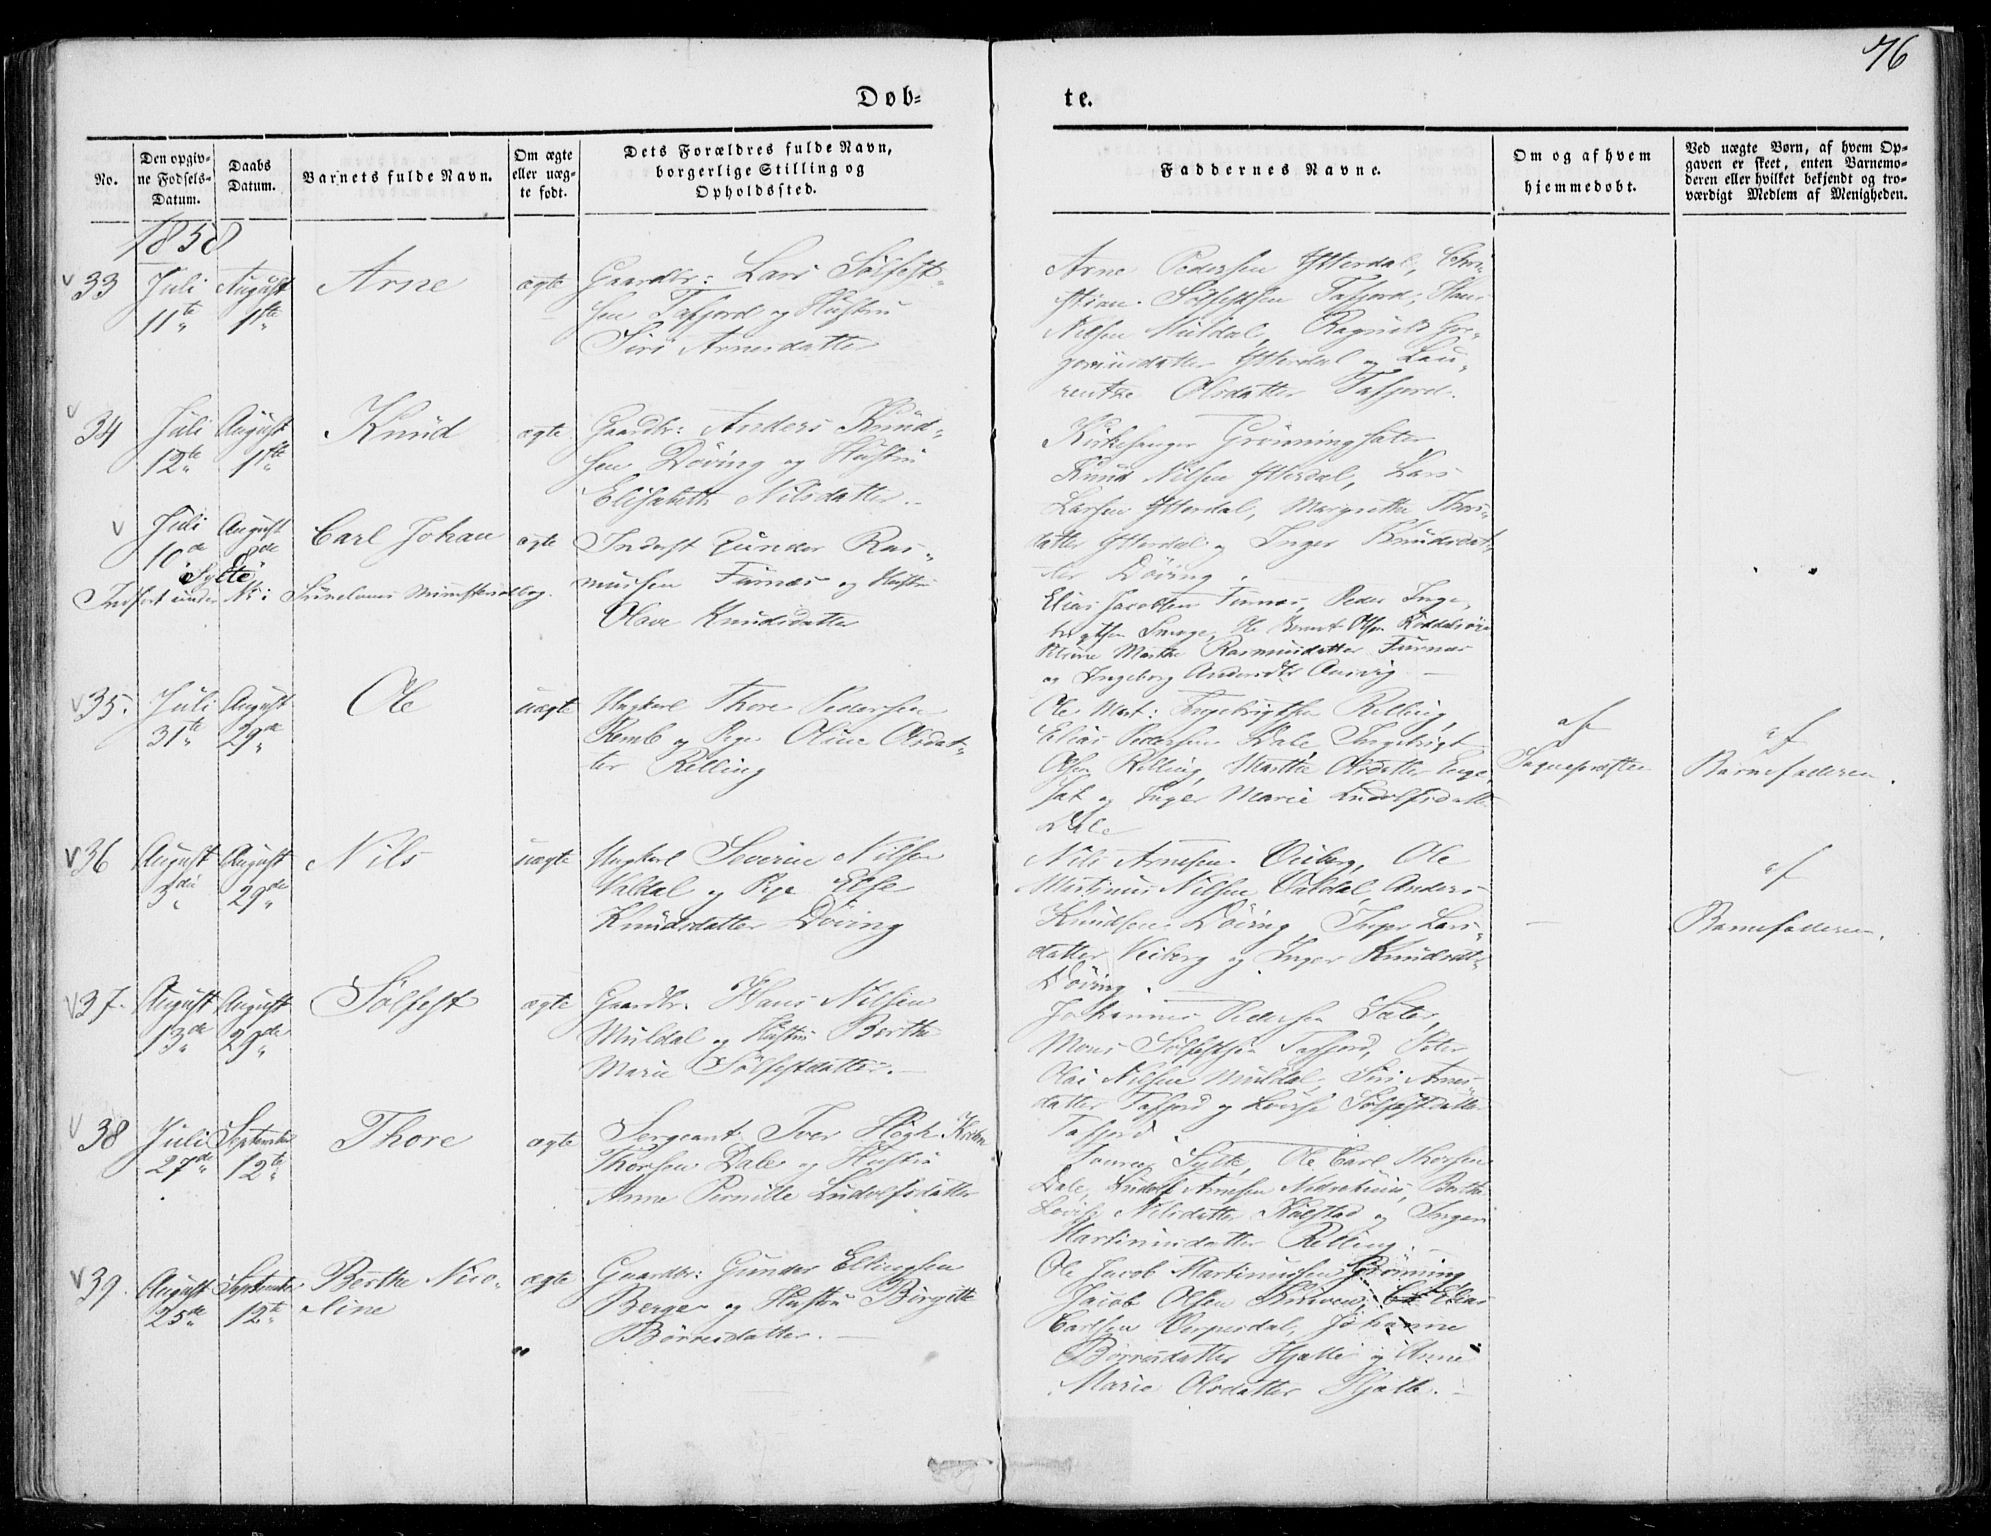 76
Døb-
te.
No.
Den opgiv-
ne Fødsels-
Datum.
Daabs
Datum.
Barnets fulde Navn.
Om ægte
eller uæg-
te født.
Dets Forældres fulde Navn,
borgerlige Stilling og
Opholdssted.
Faddernes Navne.
Om og af hvem
hjemmedøbt.
Ved uægte Børn, af hvem Op-
gaven er skeet, enten Barnemo-
deren eller hvilket bekjendt og tro-
værdigt Medlem af Menigheden.
1858
33 Juli 11te August 1ste Arne ægte
Gaardbr: Lars Sølfest-
sen Tafjord og Hustru
Siri Arnesdatter
Arne Pedersen Ytterdal, Chri-
stian Sølfestsen Tafjord, Hans
Nilsen Muldal, Ragnild Gre-
goriusdatter Ytterdal og Lau-
rentze Olsdatter Tafjord.
34 Juli 12te August 1ste Knud ægte
Gaardbr: Anders Knud-
sen Døving og Hustru
Elisabeth Nilsdatter.
Kirkesanger Grønningsæter
Knud Nilsen Ytterdal, Lars
Larsen Ytterdal, Margrethe Thors-
datter Ytterdal og Inger Knudsdat-
ter Døving.
Juli 10de August 8de Carl Johan ægte
Sylte
Indført under No i Sunelvens Ministerialbog.
Inderst Gunder Ras-
mussen Furnæs og Hustru
Olave Knudsdatter
Elias Jacobsen Furnæs, Peder Inge-
brigtsen Smoge, Ole Bernt Olsen
Marthe Rasmusdatter Furnæs
og Ingeborg Andersdtr
35. Juli 31te August 29de Ole uægte
Ungkarl Thore Pedersen
Remb og Pige Oline Olsdat-
ter Relling
Ole Mart: Ingebrigtsen Relling,
Elias Pedersen Dale, Ingebrigt
Olsen Relling, Marthe Olsdatter Enge-
sæt og Inger Marie Ludolfsdatt-
Dale
af
Sognepræsten
af
Barnefaderen.
36 August 3die August 29de Nils uægte
Ungkarl Severin Nilsen
Valdal og Pige Else
Knudsdatter Døving
Nils Arnesen Veiberg, Ole
Martinus Nilsen Valdal, Anders
Knudsen Døving, Inger Lars-
datter Veiberg og Inger Knudsdatt-
Døving.
af
Barnefaderen.
37. August 13de August 29de Sølfest ægte
Gaardbr. Hans Nilsen
Muldal og Hustru Berthe
Marie Sølfestdatter.
Johannes Pedersen Sæter,
Mons Sølfestsen Tafjord, Peter
Olai Nilsen Muldal, Siri Arnes-
datter Tafjord og Lovise Sølfestdatter
Tafjord
38 Juli 27de September 12te Thore ægte
Sergeant Iver Høgh
Thorsen Dale og Hustru
Anne Pernille Ludolfsdatter
Sylte, Ole Carl Thorsen
Dale, Ludolf Arnesen, Berthe
Lovise Nilsdatter og Inger
Martinusdatter Relling.
39. August 25de September 12te Berthe Nico-
line ægte
Gaardbr: Gunder Ellingsen
Berge og Hustru Birgitte
Børresdatter.
Ole Jacob Martinussen Grønning
Jacob Olsen, Elias
Carlsen Verpesdal, Johanne
Børresdatter Hjelle og Anne
Marie Olsdatter Hjelle.